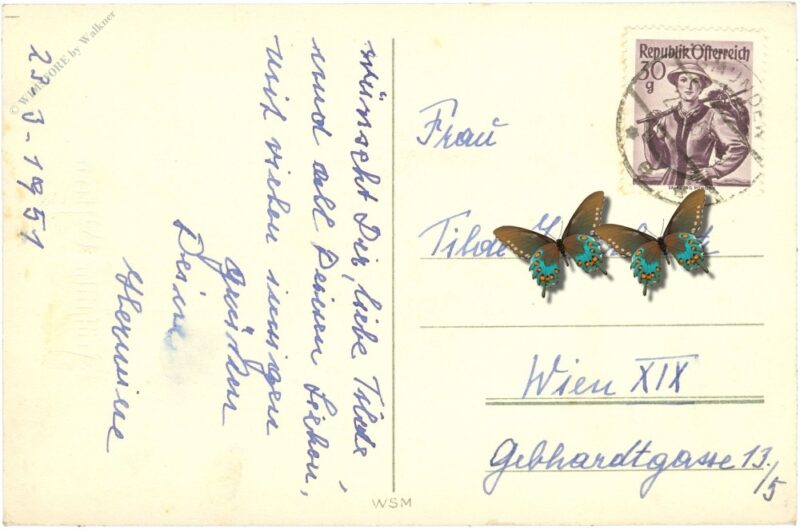 © WIENTORE by Walkner
23-3-1951
wünscht Dir, liebe Tilde
und all Deinen Lieben,
mit vielen innigen
Grüßen
Deine
Hermine
WSM
Republik Österreich
30
g
GMUNDEN
Frau
Tilde
Wien XIX
Gebhardtgasse 13/5